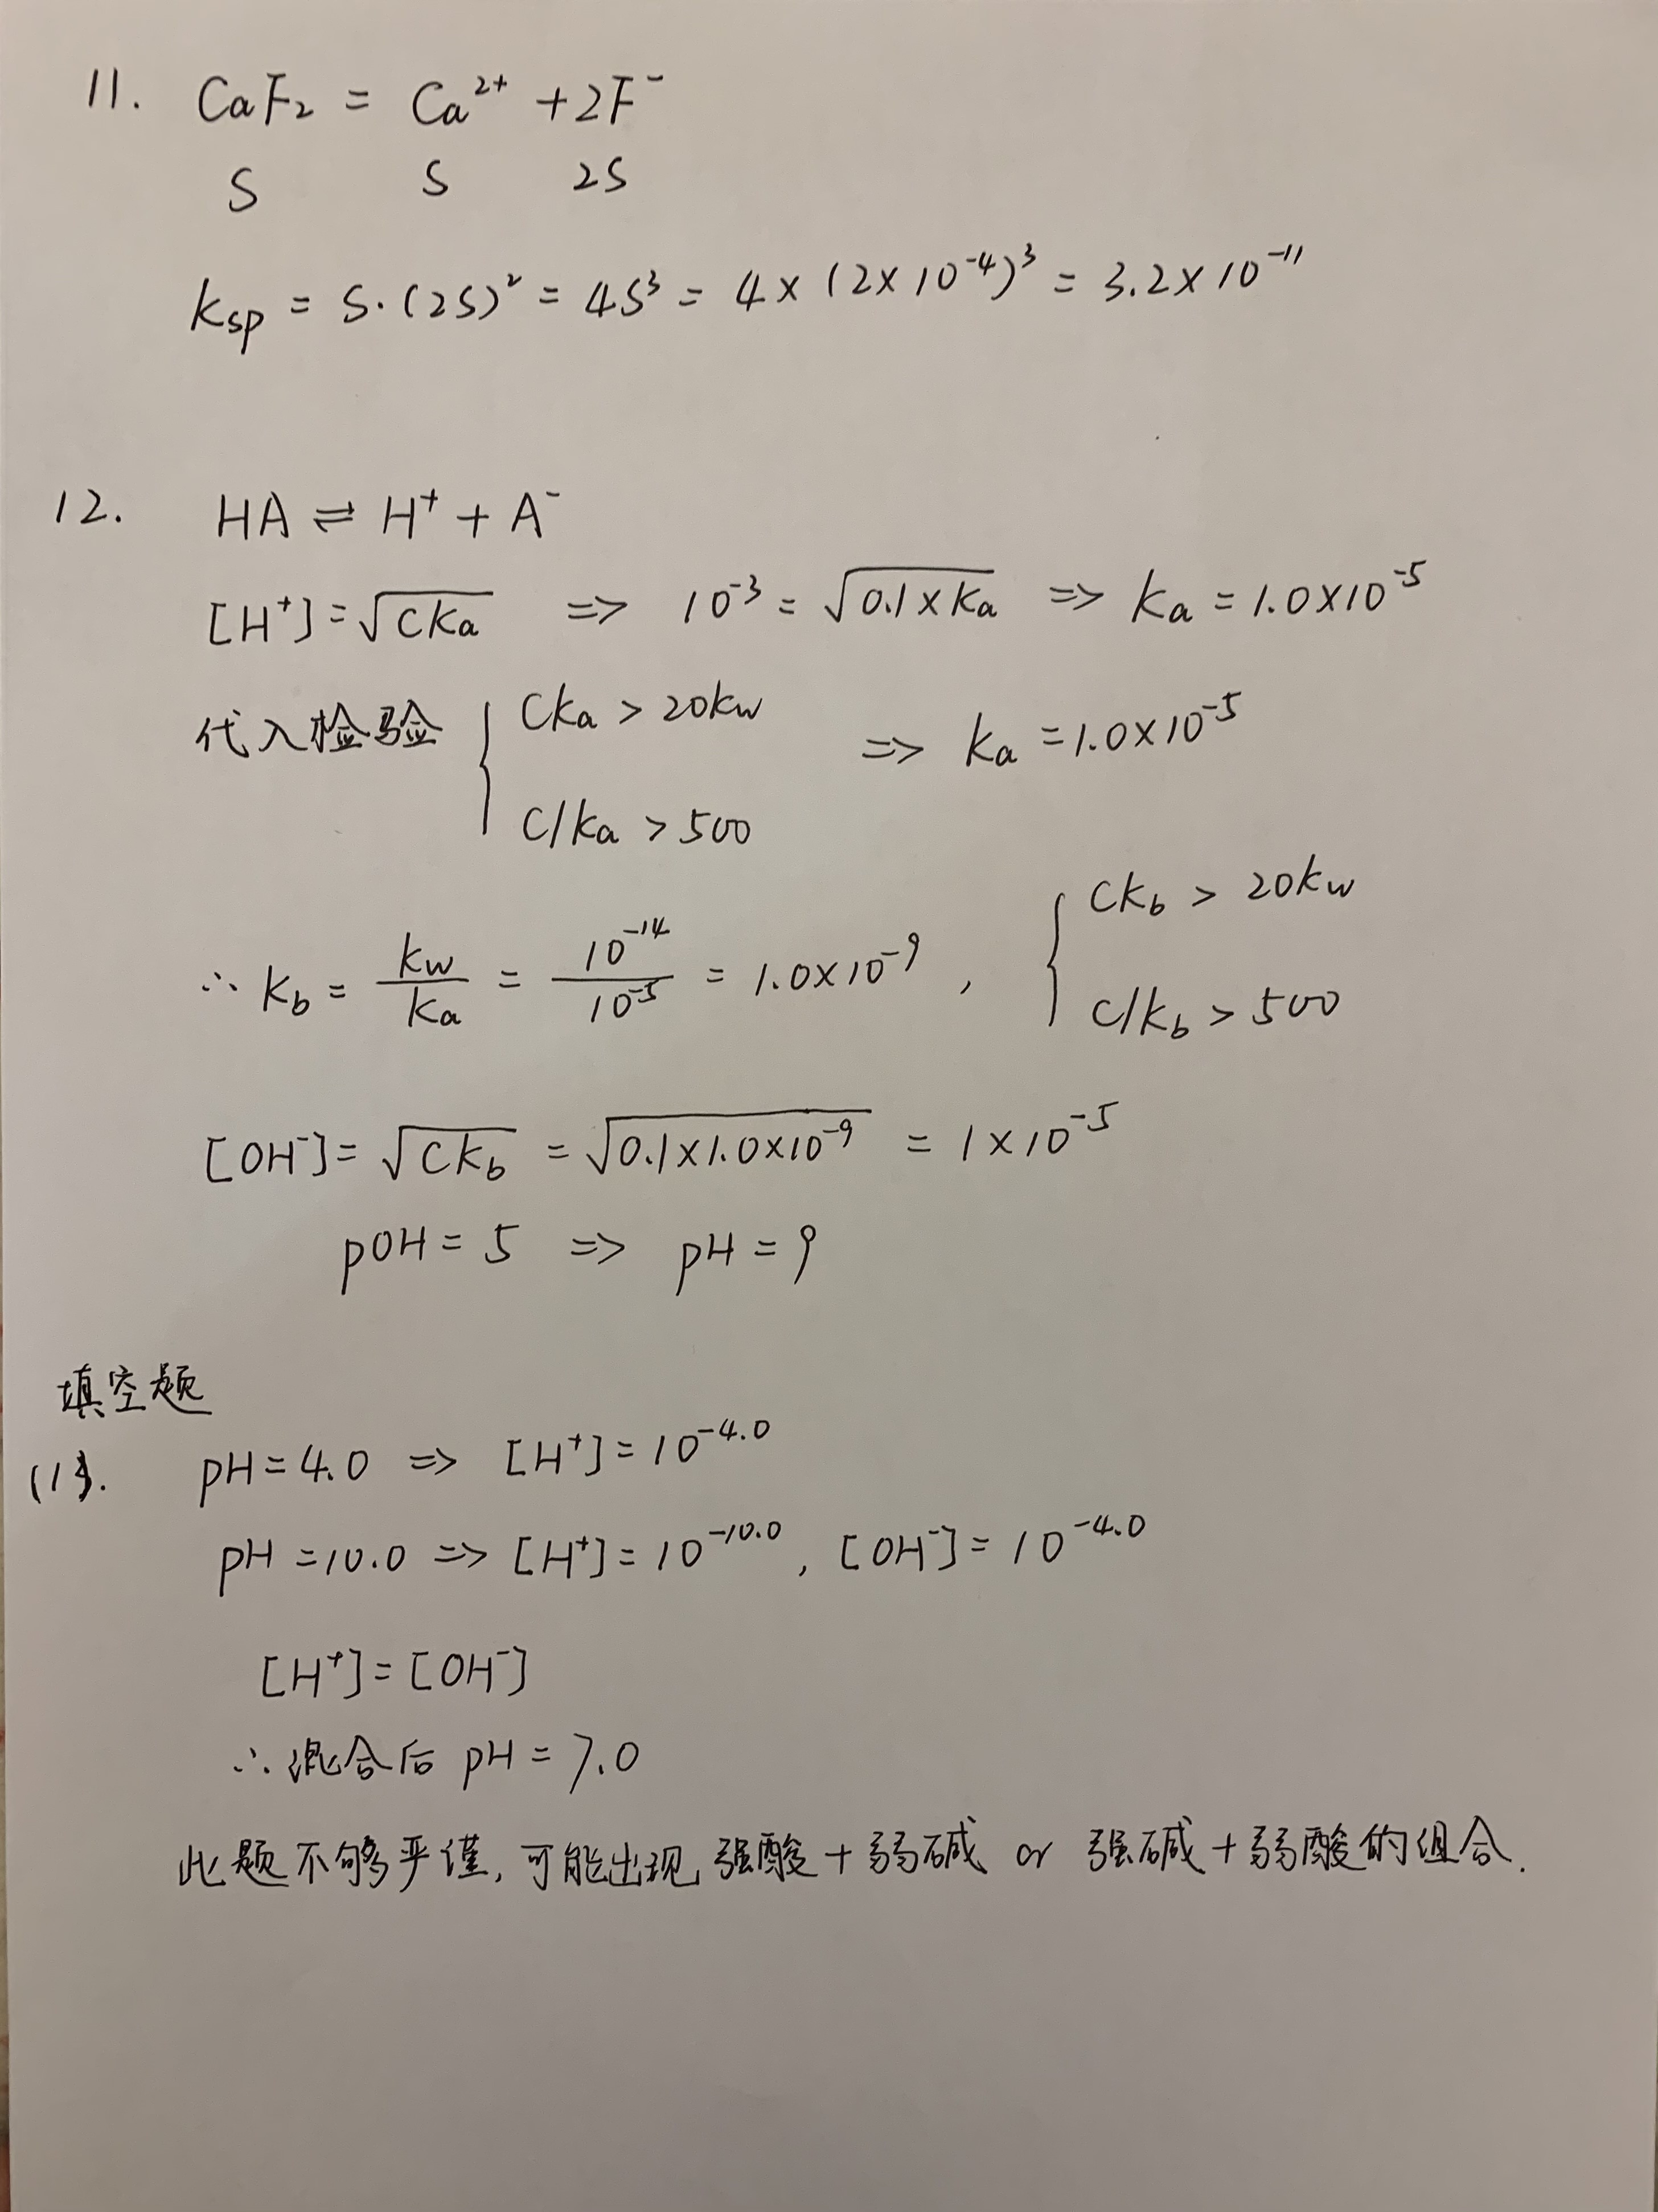 11. CaF₂ = Ca²⁺ + 2F⁻
S S 2S
ksp = S·(2S)² = 4S³ = 4×(2×10⁻⁴)³ = 3.2×10⁻¹¹
12. HA ⇌ H⁺ + A⁻
[H⁺]=√(cka) => 10⁻³ = √(0.1×ka) => ka = 1.0×10⁻⁵
代入检验 { cka > 20kw => ka = 1.0×10⁻⁵
c/ka > 500
∴ kb = kw/ka = 10⁻¹⁴/10⁻⁵ = 1.0×10⁻⁹, { ckb > 20kw
c/kb > 500
[OH⁻]= √(ckb) = √(0.1×1.0×10⁻⁹) = 1×10⁻⁵
pOH = 5 => pH = 9
填空题
(1). pH=4.0 => [H⁺]=10⁻⁴·⁰
pH=10.0 => [H⁺]=10⁻¹⁰·⁰, [OH⁻]=10⁻⁴·⁰
[H⁺]=[OH⁻]
∴混合后 pH = 7.0
此题不够严谨,可能出现强酸+弱碱 or 强碱+弱酸的组合.